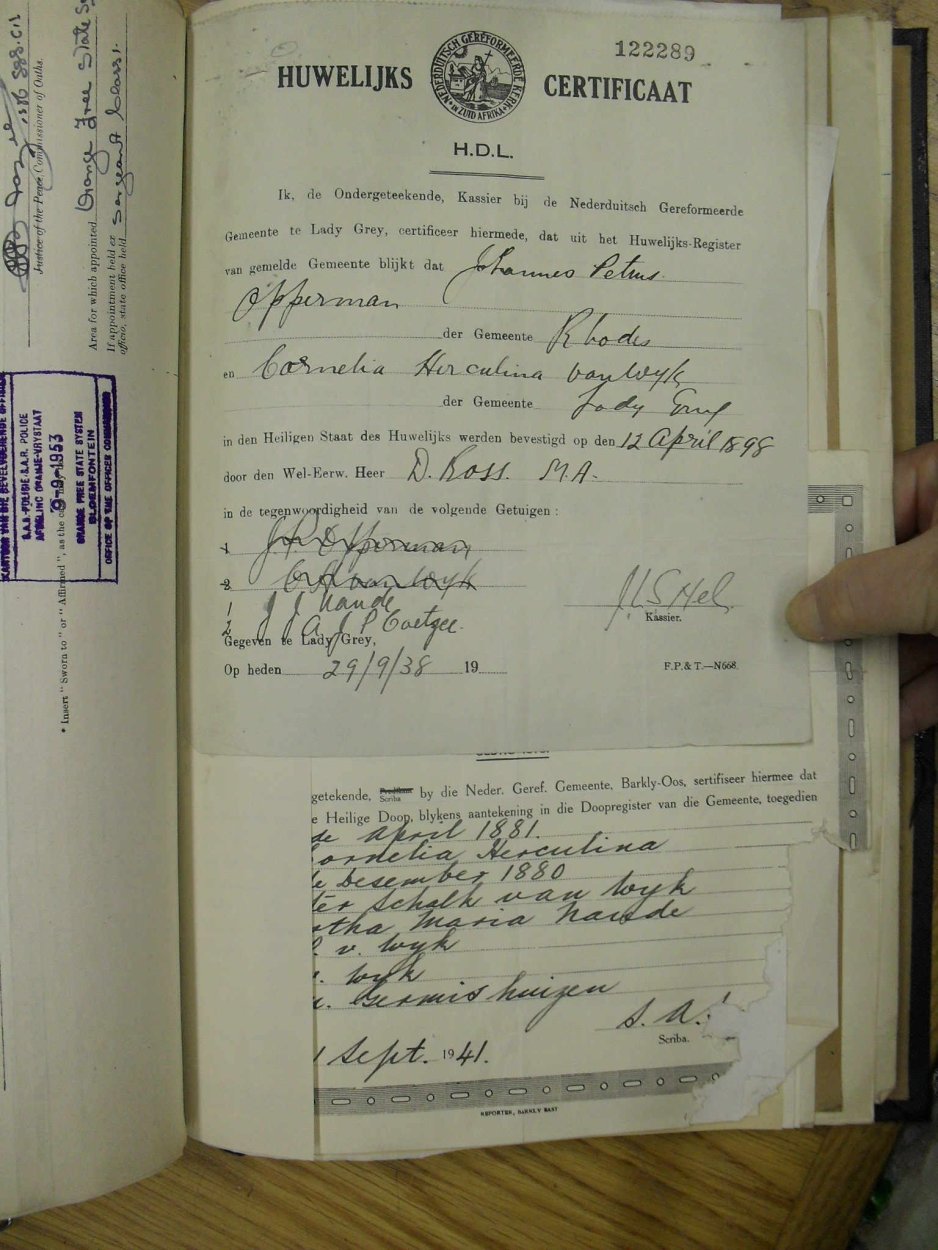 Justice of the Peace, Commissioner of Oaths.
Area for which appointed Orange Free State
If appointment held ex
officio, state office held Sergeant Class 1.
S.A.R. POLICE
AFDELING ORANJE-VRYSTAAT
9-9-1953
ORANGE FREE STATE SYSTEM
BLOEMFONTEIN
OFFICE OF THE OFFICER COMMANDING
* Insert "Sworn to" or "Affirmed", as the
122289
HUWELIJKS CERTIFICAAT
NEDERDUITSCH GEREFORMEERDE KERK IN ZUID AFRIKA
H.D.L.
Ik, de Ondergeteekende, Kassier bij de Nederduitsch Gereformeerde
Gemeente te Lady Grey, certificeer hiermede, dat uit het Huwelijks-Register
van gemelde Gemeente blijkt dat Johannes Petrus
Opperman
der Gemeente Rhodes
en Cornelia Herculina van Wyk
der Gemeente Lady Grey
in den Heiligen Staat des Huwelijks werden bevestigd op den 12 April 1898
door den Wel-Eerw. Heer D. Ross. M.A.
in de tegenwoordigheid van de volgende Getuigen :
1 J. P. Opperman
2 C H van Wyk
1 J J Naude
2 J A J P Coetzee
Kassier.
Gegeven te Lady Grey,
Op heden 29/9/38 19
F.P. & T.—N668.
getekende, Scriba by die Neder. Geref. Gemeente, Barkly-Oos, sertifiseer hiermee dat
e Heilige Doop, blykens aantekening in die Doopregister van die Gemeente, toegedien
de April 1881.
ornelia Herculina
de Desember 1880
ter Schalk van Wyk
tha Maria Naude
v. Wyk
Wyk
Germishuizen
S. A.
Scriba.
Sept. 1941.
REPORTER, BARKLY EAST